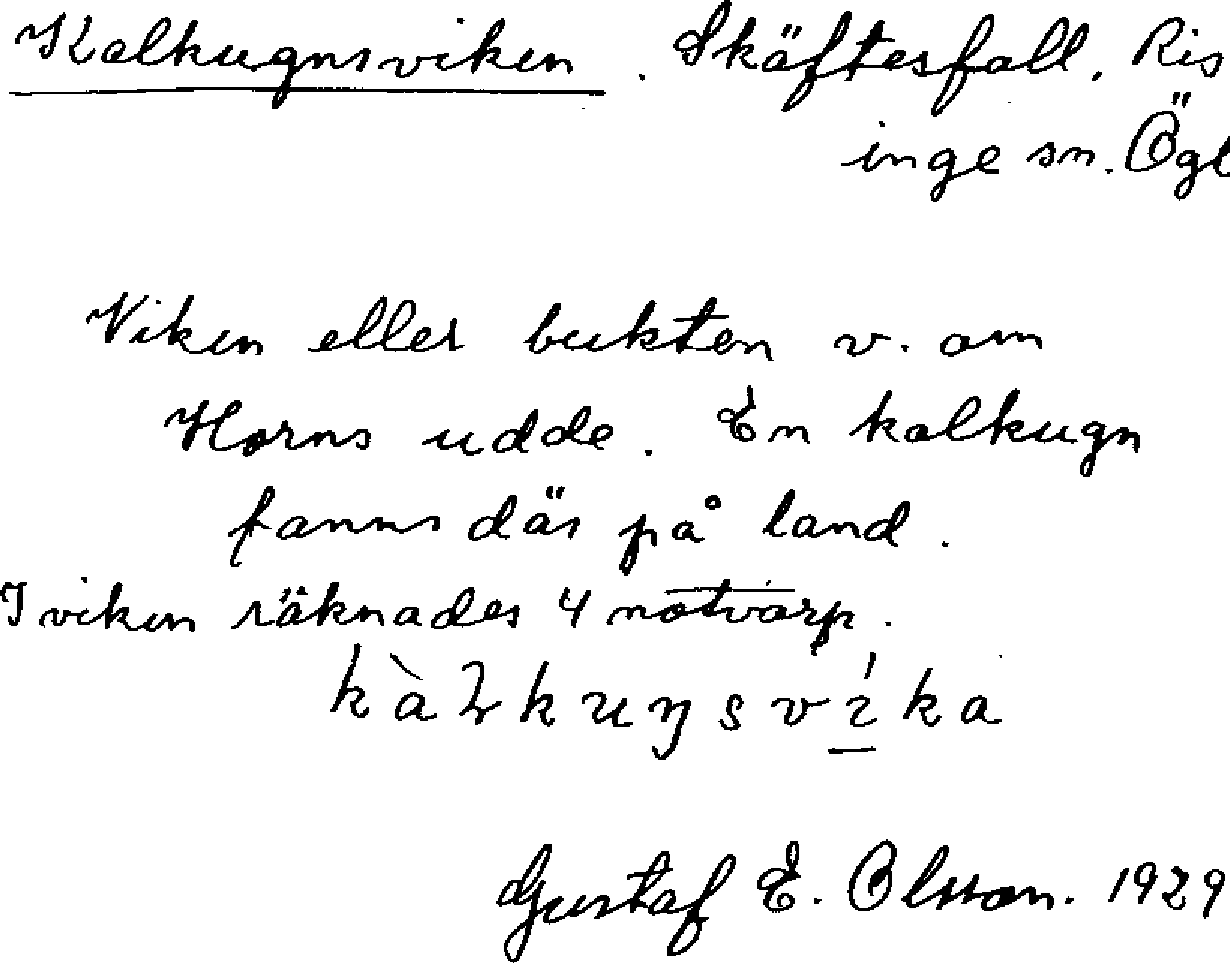 Kalkugnsviken. Skäftesfall, Ris
inge sn. Ögl
Viken eller bukten v. om
Horns udde. En kalkugn
fanns där på land.
I viken räknades 4 notvarp.
kàɫkuŋsvíka
Gustaf E. Olsson. 1929